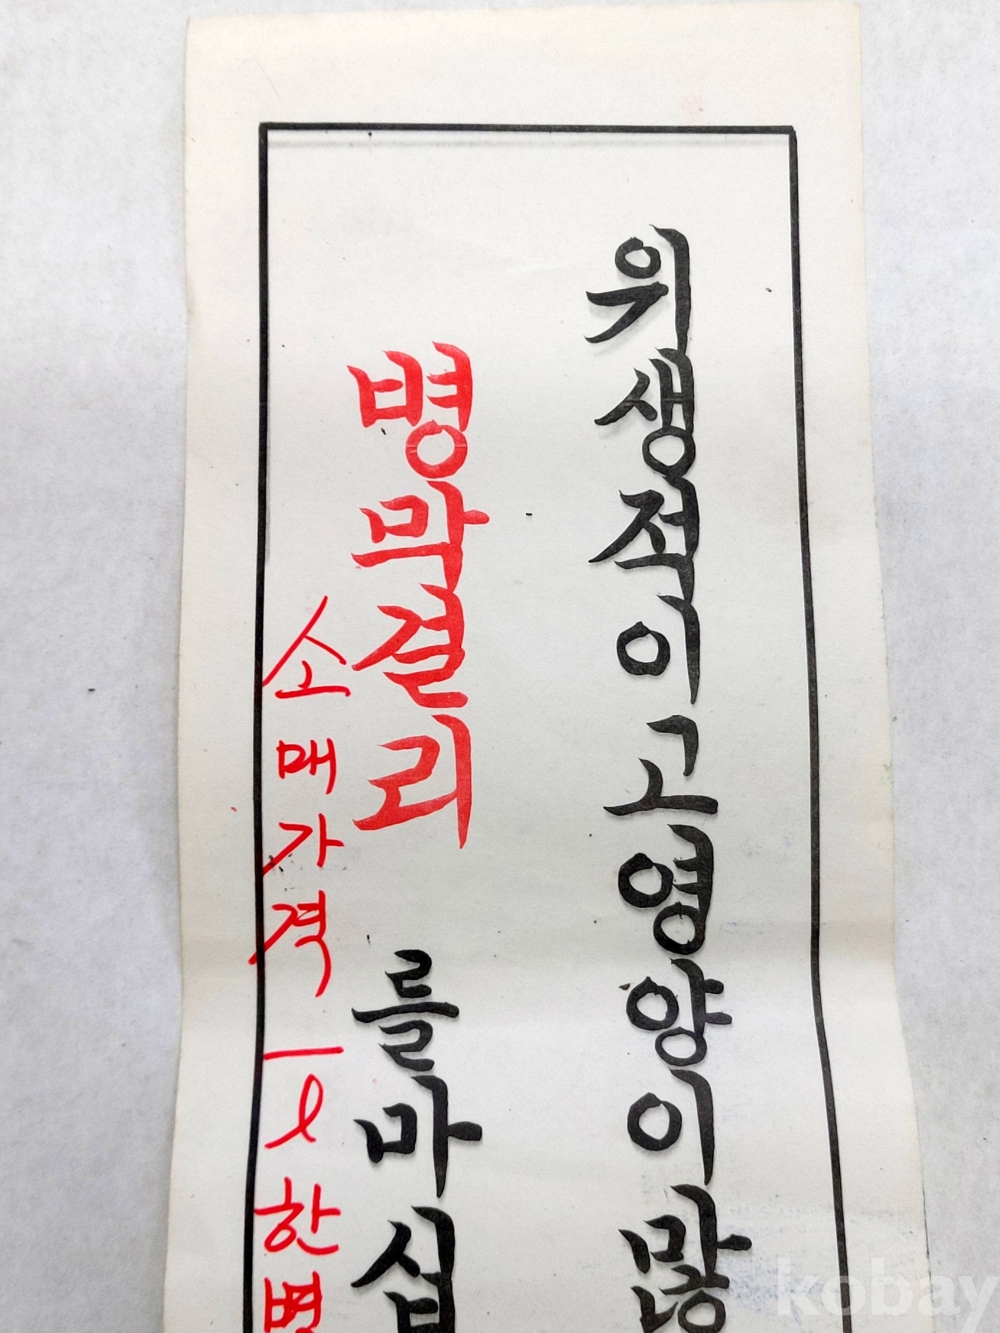 위생적이고영양이많
병막걸리를마십
소매가격 一ℓ한병
kobay